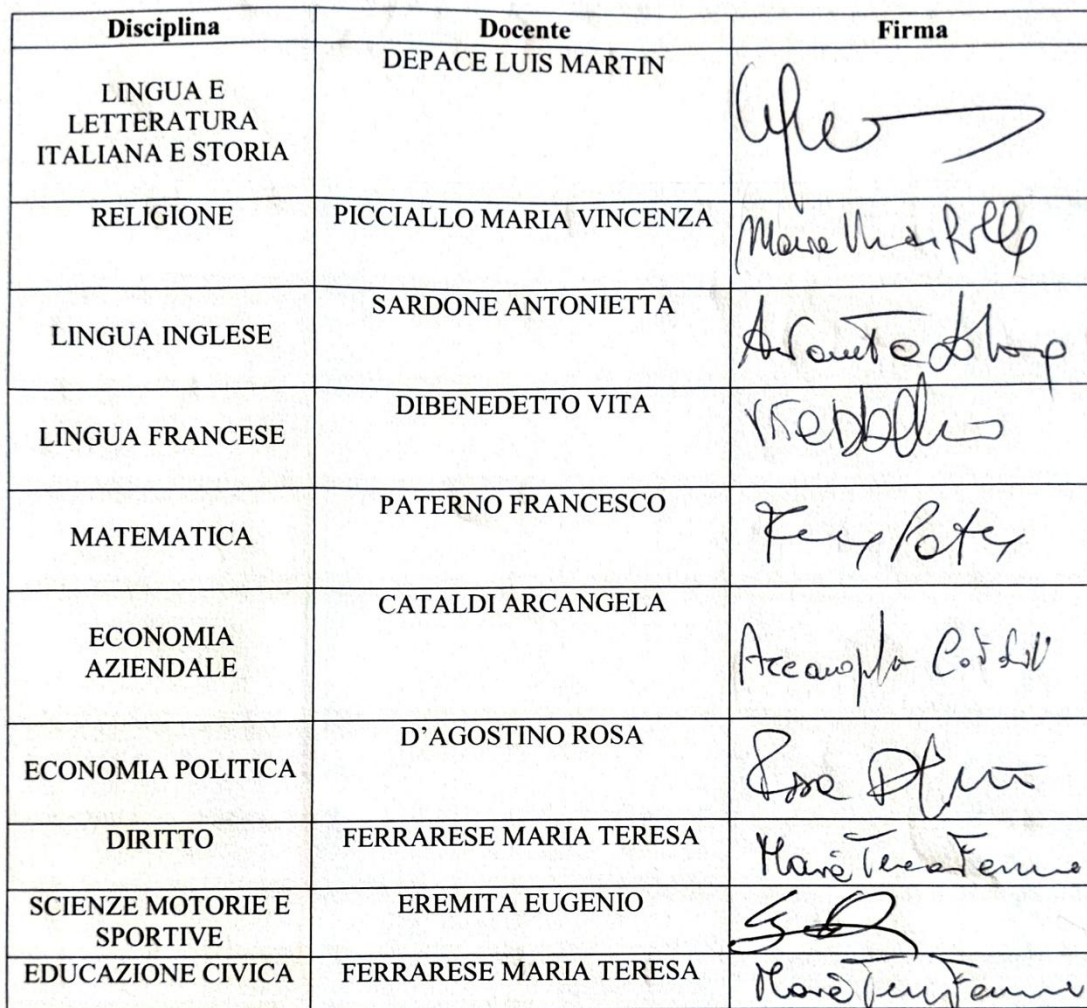 Disciplina Docente Firma
LINGUA E
LETTERATURA
ITALIANA E STORIA
DEPACE LUIS MARTIN
RELIGIONE PICCIALLO MARIA VINCENZA
LINGUA INGLESE SARDONE ANTONIETTA
LINGUA FRANCESE DIBENEDETTO VITA
MATEMATICA PATERNO FRANCESCO
ECONOMIA
AZIENDALE
CATALDI ARCANGELA Arcangela Cataldi
ECONOMIA POLITICA D'AGOSTINO ROSA Rosa
DIRITTO FERRARESE MARIA TERESA Maria Teresa
SCIENZE MOTORIE E
SPORTIVE
EREMITA EUGENIO
EDUCAZIONE CIVICA FERRARESE MARIA TERESA Maria